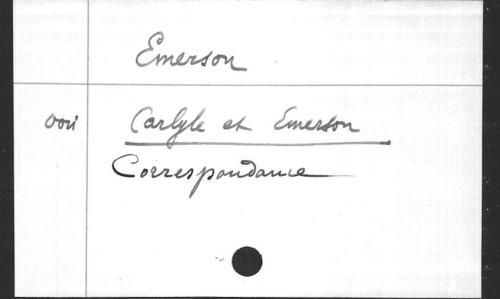 Emerson
voir Carlyle et Emerson
Correspondance